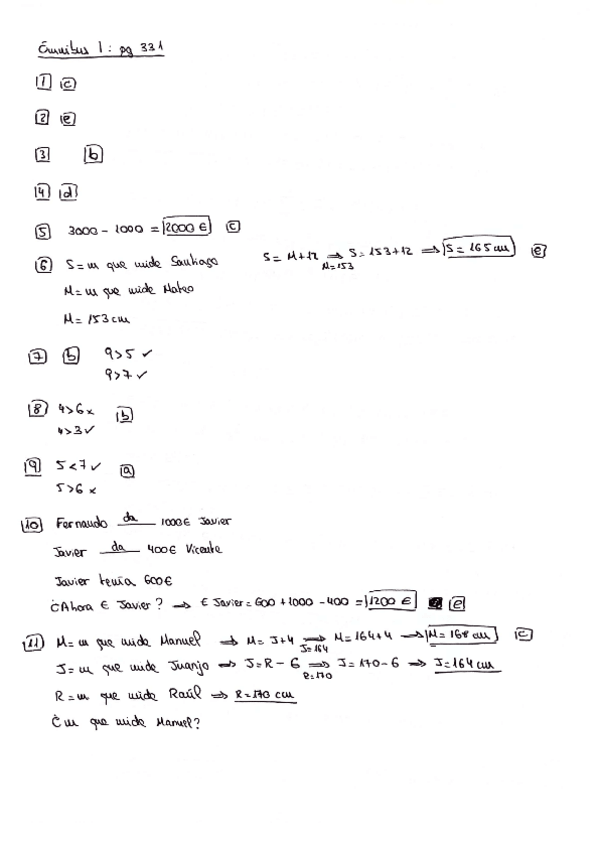 Ómnibus 1: pg 331
1 c
2 e
3 b
4 d
5 3000 - 1000 = 2000 € c
6 S = m que mide Santiago S = M + 12 ⇒ M=153 S = 153 + 12 ⇒ S = 165 cm e
M = m que mide Mateo
M = 153 cm
7 b 9 > 5 ✓
9 > 7 ✓
8 4 > 6 x b
4 > 3 ✓
9 5 < 7 ✓ a
5 > 6 x
10 Fernando da 1000€ Javier
Javier da 400€ Vicente
Javier tenía 600€
¿Ahora € Javier? → € Javier = 600 + 1000 - 400 = 1200 € e
11 M = m que mide Manuel ⇒ M = J + 4 ⇒ J=164 M = 164 + 4 ⇒ M = 168 cm c
J = m que mide Juanjo ⇒ J = R - 6 ⇒ R=170 J = 170 - 6 ⇒ J = 164 cm
R = m que mide Raúl ⇒ R = 170 cm
¿m que mide Manuel?